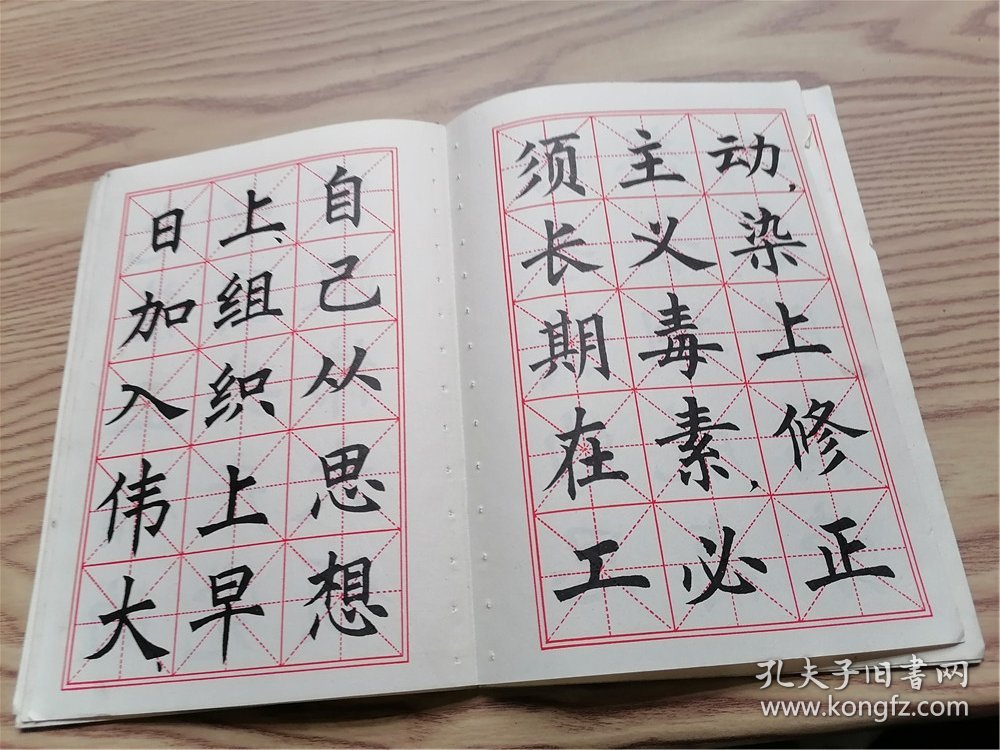 动，染上修正
主义毒素，必
须长期在工
自己从思想
上、组织上早
日加入伟大、
孔夫子旧書网
www.kongfz.com